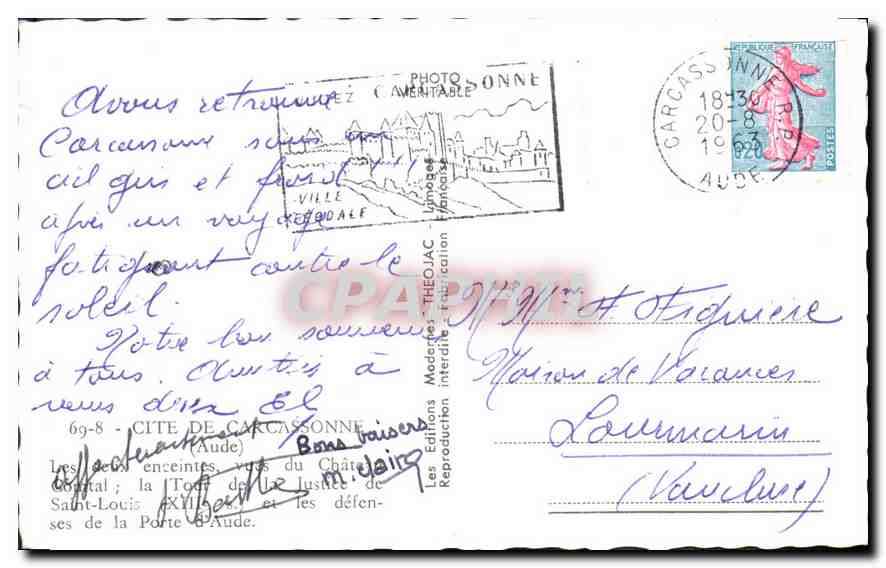 PHOTO
VERITABLE
CARCASSONNE
VILLE
REPUBLIQUE FRANÇAISE
POSTES
0,20
CARCASSONNE R.P.
18-30
20-8
1963
AUDE
Avons retrouvé
Carcassonne sous un
ciel gris et froid !!
après un voyage
fatiguant contre le
soleil.
Notre bon souvenir
à tous. Amitiés à
vous deux
Affectueusement
Bons baisers
M. Claire
69-8 - CITE DE CARCASSONNE
(Aude)
Les deux enceintes, vues du Château
Comtal ; la Tour de la Justice de
Saint-Louis et les défen-
ses de la Porte d'Aude.
Les Editions Modernes THEOJAC - Limoges
Reproduction interdite - Fabrication Française
CPAPHIL
Mr Mme
Maison de Vacances
Lourmarin
(Vaucluse)